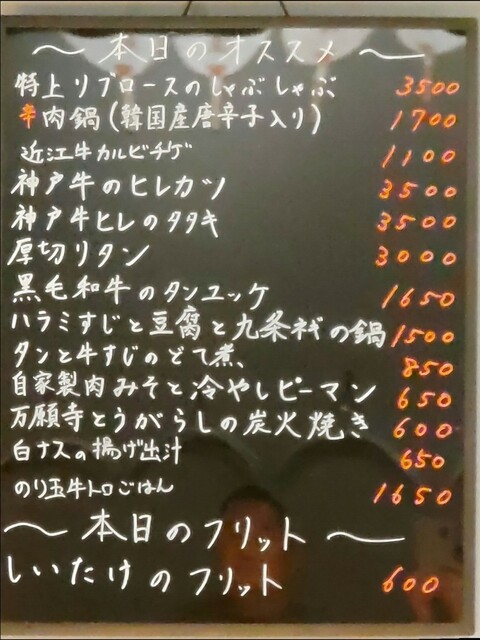 ～本日のオススメ～
特上リブロースのしゃぶしゃぶ 3500
辛肉鍋(韓国産唐辛子入り) 1700
近江牛カルビチゲ 1100
神戸牛のヒレカツ 3500
神戸牛ヒレのタタキ 3500
厚切りタン 3000
黒毛和牛のタンユッケ 1650
ハラミすじと豆腐と九条ネギの鍋 1500
タンと牛すじのどて煮、 850
自家製肉みそと冷やしピーマン 650
万願寺とうがらしの炭火焼き 600
白ナスの揚げ出汁 650
のり玉牛トロごはん 1650
～本日のフリット～
しいたけのフリット 600